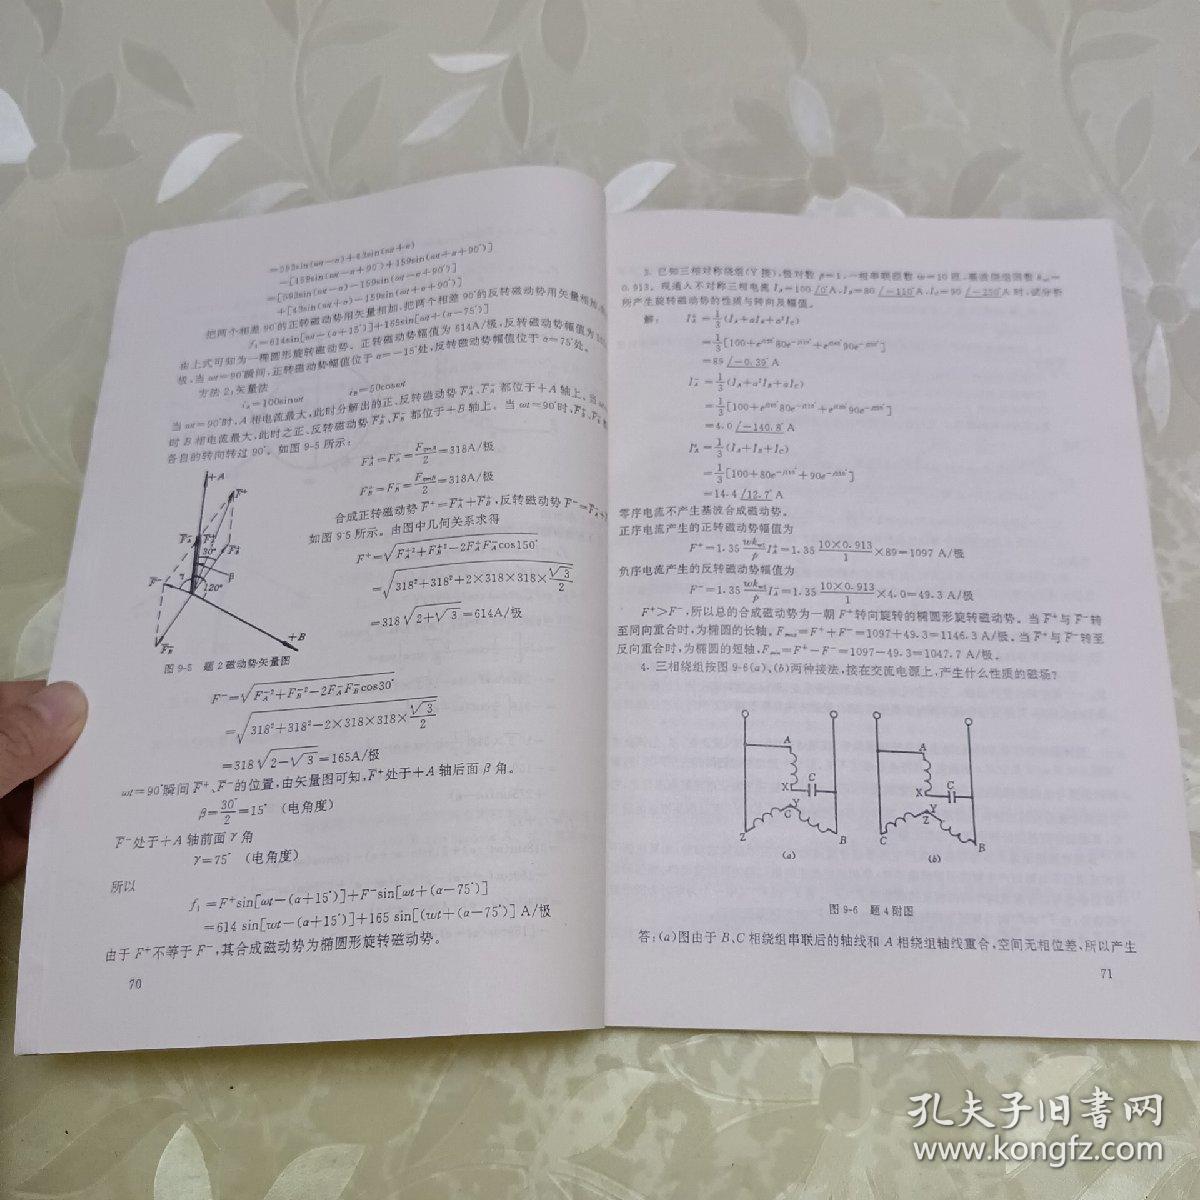 =593sin(ωt−α)+43sin(ωt+α)
−[159sin(ωt−α+90°)+159sin(ωt+α+90°)]
=[593sin(ωt−α)−159sin(ωt−α+90°)]
+[43sin(ωt+α)−159sin(ωt+α+90°)]
把两个相差90°的正转磁动势用矢量相加,把两个相差90°的反转磁动势用矢量相加,
f₁=614sin[ωt−(α+15°)]+165sin[ωt+(α−75°)]
由上式可知为一椭圆形旋转磁动势。正转磁动势幅值为614A/极,反转磁动势幅值为
极,当ωt=90°瞬间,正转磁动势幅值位于α=−15°处,反转磁动势幅值位于α=75°处。
方法2:矢量法
i_A=100sinωt i_B=50cosωt
当ωt=90°时,A相电流最大,此时分解出的正、反转磁动势F⁺_A、F⁻_A都位于+A轴上。当
时B相电流最大,此时之正、反转磁动势F⁺_B、F⁻_B都位于+B轴上。当ωt=90°时,F⁺_B、F⁻_B
各自的转向转过90°。如图9-5所示:
F⁺_A=F⁻_A=F_mA/2=318A/极
F⁺_B=F⁻_B=F_mB/2=318A/极
合成正转磁动势F⁺=F⁺_A+F⁺_B,反转磁动势F⁻=F⁻_A+
如图9-5所示。由图中几何关系求得
F⁺=√(F⁺_A²+F⁺_B²−2F⁺_AF⁺_Bcos150°
=√(318²+318²+2×318×318×√3/2)
=318√(2+√3)=614A/极
+A
F⁺
F⁻
30°
β
γ
120°
+B
图9-5 题2磁动势矢量图
F⁻=√(F⁻_A²+F⁻_B²−2F⁻_AF⁻_Bcos30°)
=√(318²+318²−2×318×318×√3/2)
=318√(2−√3)=165A/极
ωt=90°瞬间F⁺、F⁻的位置,由矢量图可知,F⁺处于+A轴后面β角。
β=30°/2=15° (电角度)
F⁻处于+A轴前面γ角
γ=75° (电角度)
所以
f₁=F⁺sin[ωt−(α+15°)]+F⁻sin[ωt+(α−75°)]
=614 sin[ωt−(α+15°)]+165 sin[(ωt+(α−75°)] A/极
由于F⁺不等于F⁻,其合成磁动势为椭圆形旋转磁动势。
70
3. 已知三相对称绕组(Y接),极对数p=1,一相串联匝数ω=10匝,基波绕组因数k_w1=
0.913。现通入不对称三相电流I_A=100/0°A,I_B=80/−110°A,I_C=90/−250°A时,试分析
所产生旋转磁动势的性质与转向及幅值。
解: I⁺_A=1/3(I_A+aI_B+a²I_C)
=89/−0.39°A
I⁻_A=1/3(I_A+a²I_B+aI_C)
=4.0/−140.8°A
I⁰_A=1/3(I_A+I_B+I_C)
=14.4/12.7°A
零序电流不产生基波合成磁动势。
正序电流产生的正转磁动势幅值为
F⁺=1.35 wk_w1/p I⁺_A=1.35 10×0.913/1×89=1097 A/极
负序电流产生的反转磁动势幅值为
F⁻=1.35 wk_w1/p I⁻_A=1.35 10×0.913/1×4.0=49.3 A/极
F⁺>F⁻,所以总的合成磁动势为一朝F⁺转向旋转的椭圆形旋转磁动势。当F⁺与F⁻转
至同向重合时,为椭圆的长轴。F_max=F⁺+F⁻=1097+49.3=1146.3 A/极。当F⁺与F⁻转至
反向重合时,为椭圆的短轴,F_min=F⁺−F⁻=1097−49.3=1047.7 A/极。
4. 三相绕组按图9-6(a)、(b)两种接法,接在交流电源上,产生什么性质的磁场?
A
X
C
Y
C
Z
B
(a)
A
X
C
Y
Z
C
B
(b)
图9-6 题4附图
答:(a)图由于B、C相绕组串联后的轴线和A相绕组轴线重合,空间无相位差、所以产生
71
孔夫子旧书网
www.kongfz.com